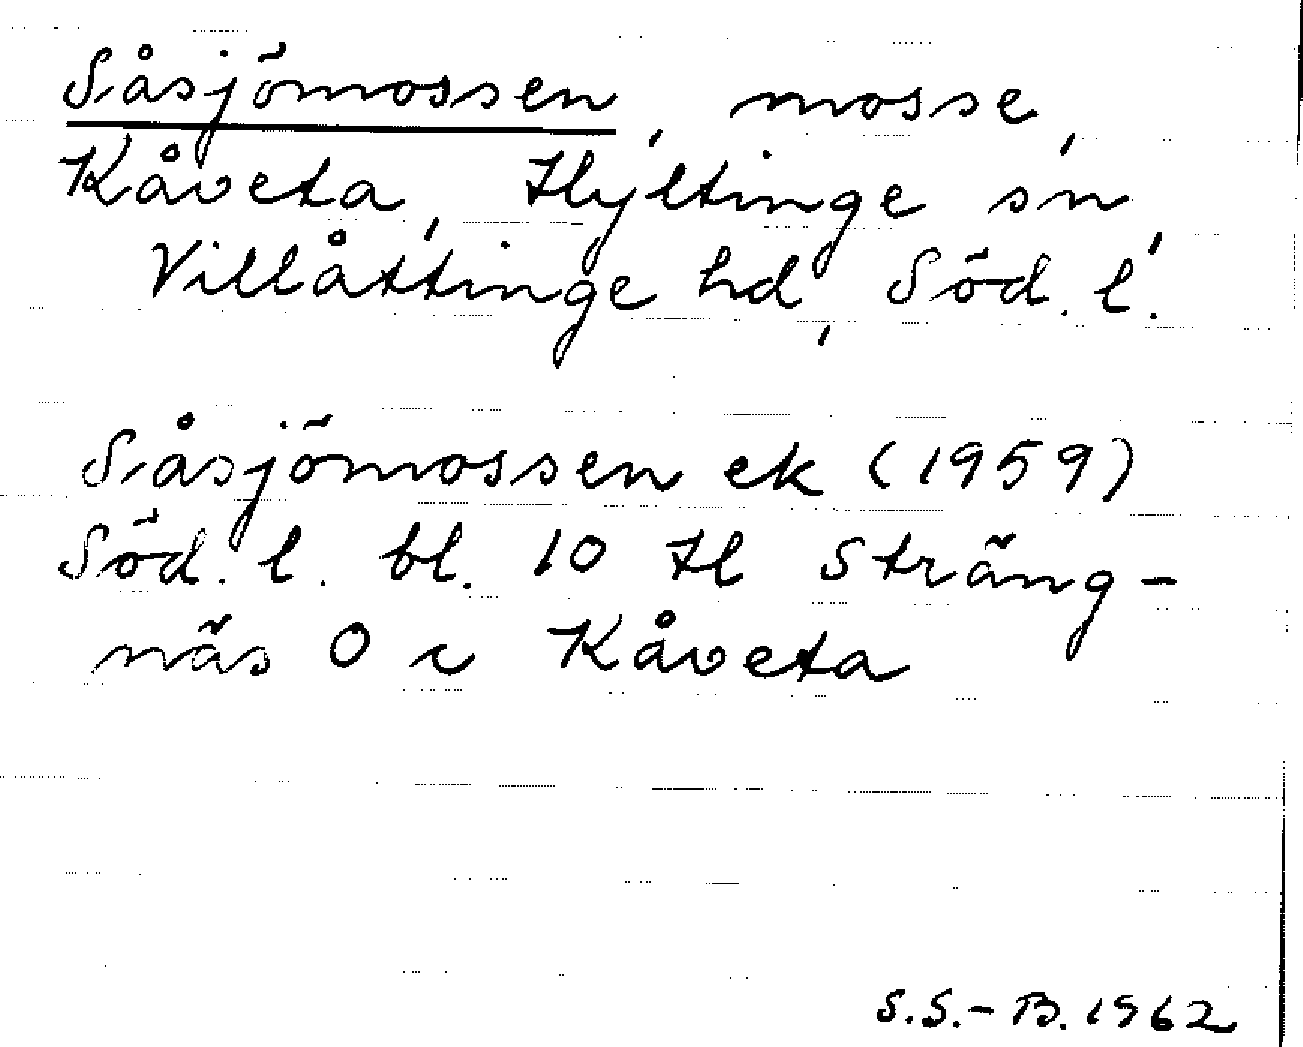 Såsjömossen, mosse,
Kåveta, Hyltinge sn,
Villåttinge hd, Söd. l.
Såsjömossen ek (1959)
Söd. l. bl. 10 H Sträng-
näs O i Kåveta
S.S.-B. 1962